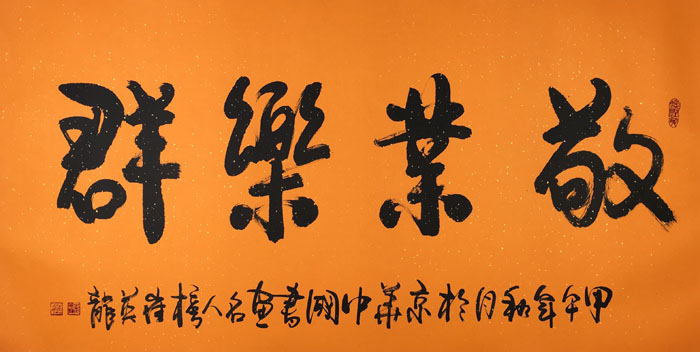 敬業樂群
甲午年秋月於京華中國書畫名人崔英龍